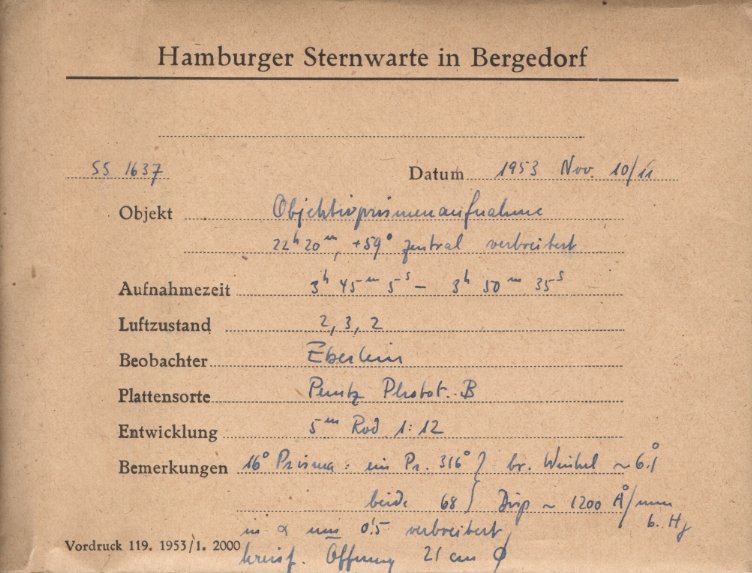 Hamburger Sternwarte in Bergedorf
SS 1637 Datum 1953 Nov. 10/11
Objekt Objektivprismenaufnahme
22h 20m, +59° zentral verbreitert
Aufnahmezeit 3h 45m 5s – 3h 50m 35s
Luftzustand 2, 3, 2
Beobachter
Plattensorte Perutz Photot. B
Entwicklung 5m Rod 1:12
Bemerkungen 16° Prisma: ein Pr. 316° } br. Winkel ~ 6.1
beide 68 } Disp ~ 1200 Å/mm
b. Hγ
in α um 0.5 verbreitert
Vordruck 119. 1953/1. 2000 kreisf. Öffnung 21 cm ϕ